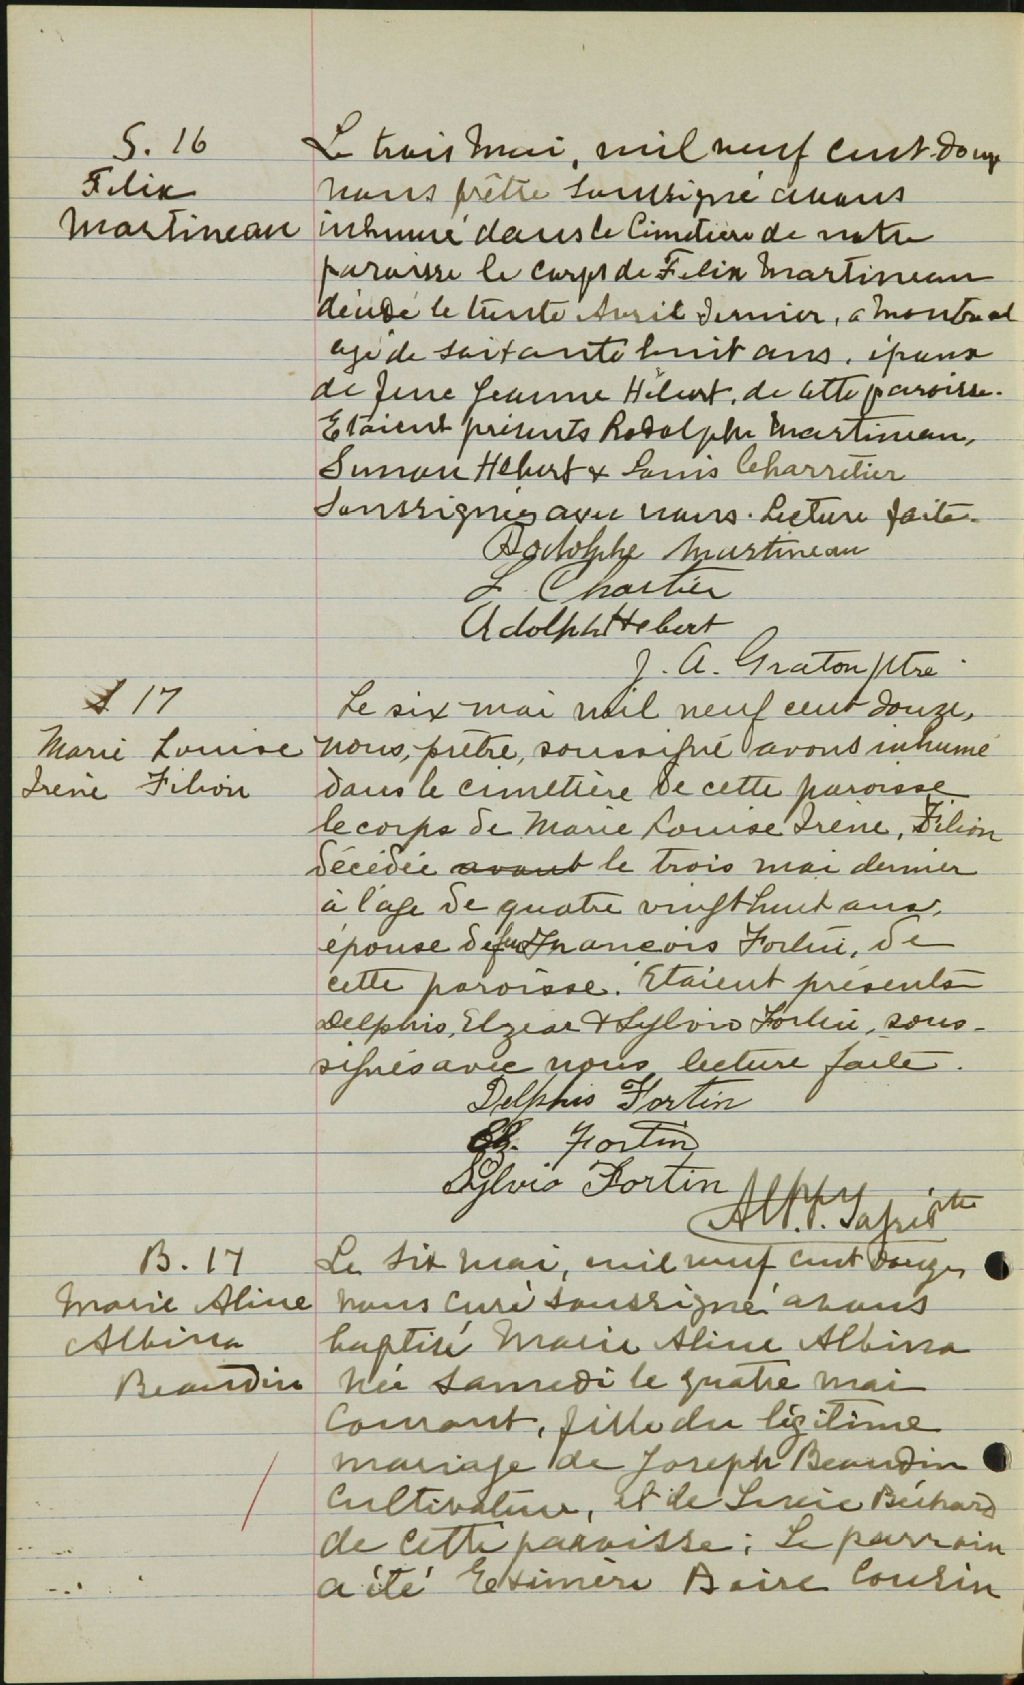 S. 16
Felix
Martineau
Le trois Mai, mil neuf cent douze
nous prêtre soussigné avons
inhumé dans le Cimetiere de notre
paroisse le corps de Felix Martineau
décédé le trente Avril dernier, a Montreal
agé de soixante huit ans. époux
de feue Jeanne Hébert, de cette paroisse.
Etaient présents Rodolphe Martineau,
Hebert & Louis
soussignés avec nous. Lecture faite.
Rodolphe Martineau
L Chartier
Adolph Hebert
J. A. Graton ptre
S 17
Marie Louise
Irène Filion
Le six mai mil neuf cent douze,
nous, prêtre, soussigné avons inhumé
dans le cimetière de cette paroisse
le corps de Marie Louise Irène, Filion
décédée avant le trois mai dernier
à l'age de quatre vingt huit ans,
épouse de feu François Fortin, de
cette paroisse. Etaient présents
Delphis, Elzear & Sylvio Fortin, sous-
signés avec nous lecture faite.
Delphis Fortin
El. Fortin
Sylvio Fortin
ptre
B. 17
Marie Aline
Albina
Beaudin
Le Six Mai, mil neuf cent douze,
nous curé soussigné avons
baptisé Marie Aline Albina
née samedi le quatre mai
Courant, fille du légitime
mariage de Joseph Beaudin
Cultivateur, et de
de cette paroisse; Le parrain
a été Cousin